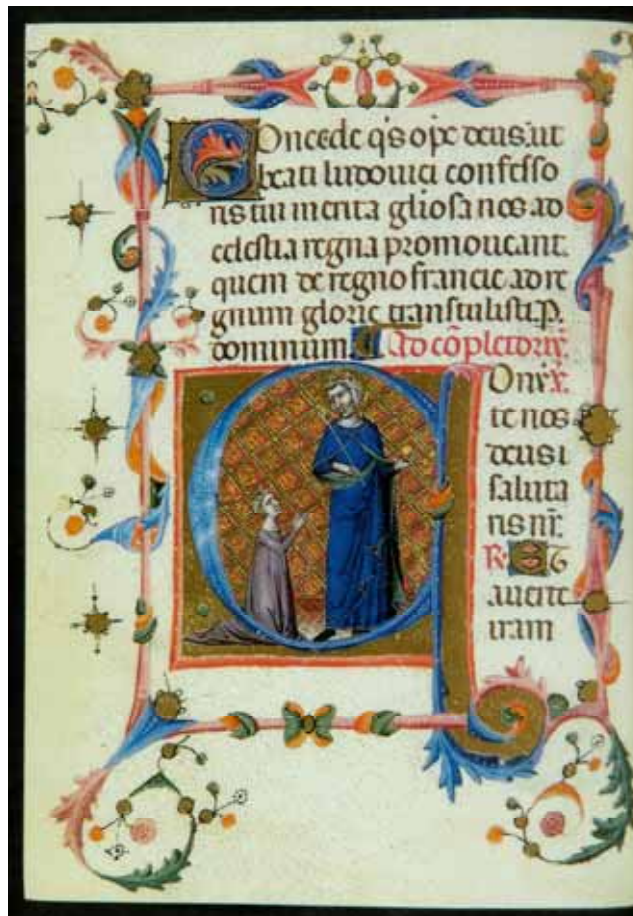 Concede q̄s op̄c deus. ut
beati ludouici confesso
ris tui merita gliosa nos ad
celestia regna promoueant.
quem de regno francie ad re
gnum glorie transtulisti. P.
dominum. Ad cōpletoriū.
Onūe
te nos
deus
saluta
ris nr̄.
R. Et
auerte
iram